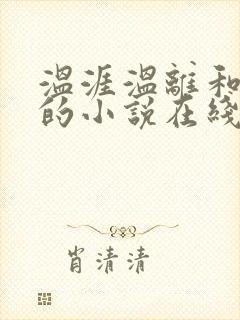 温涯温離和
的小说在綫
肖清清